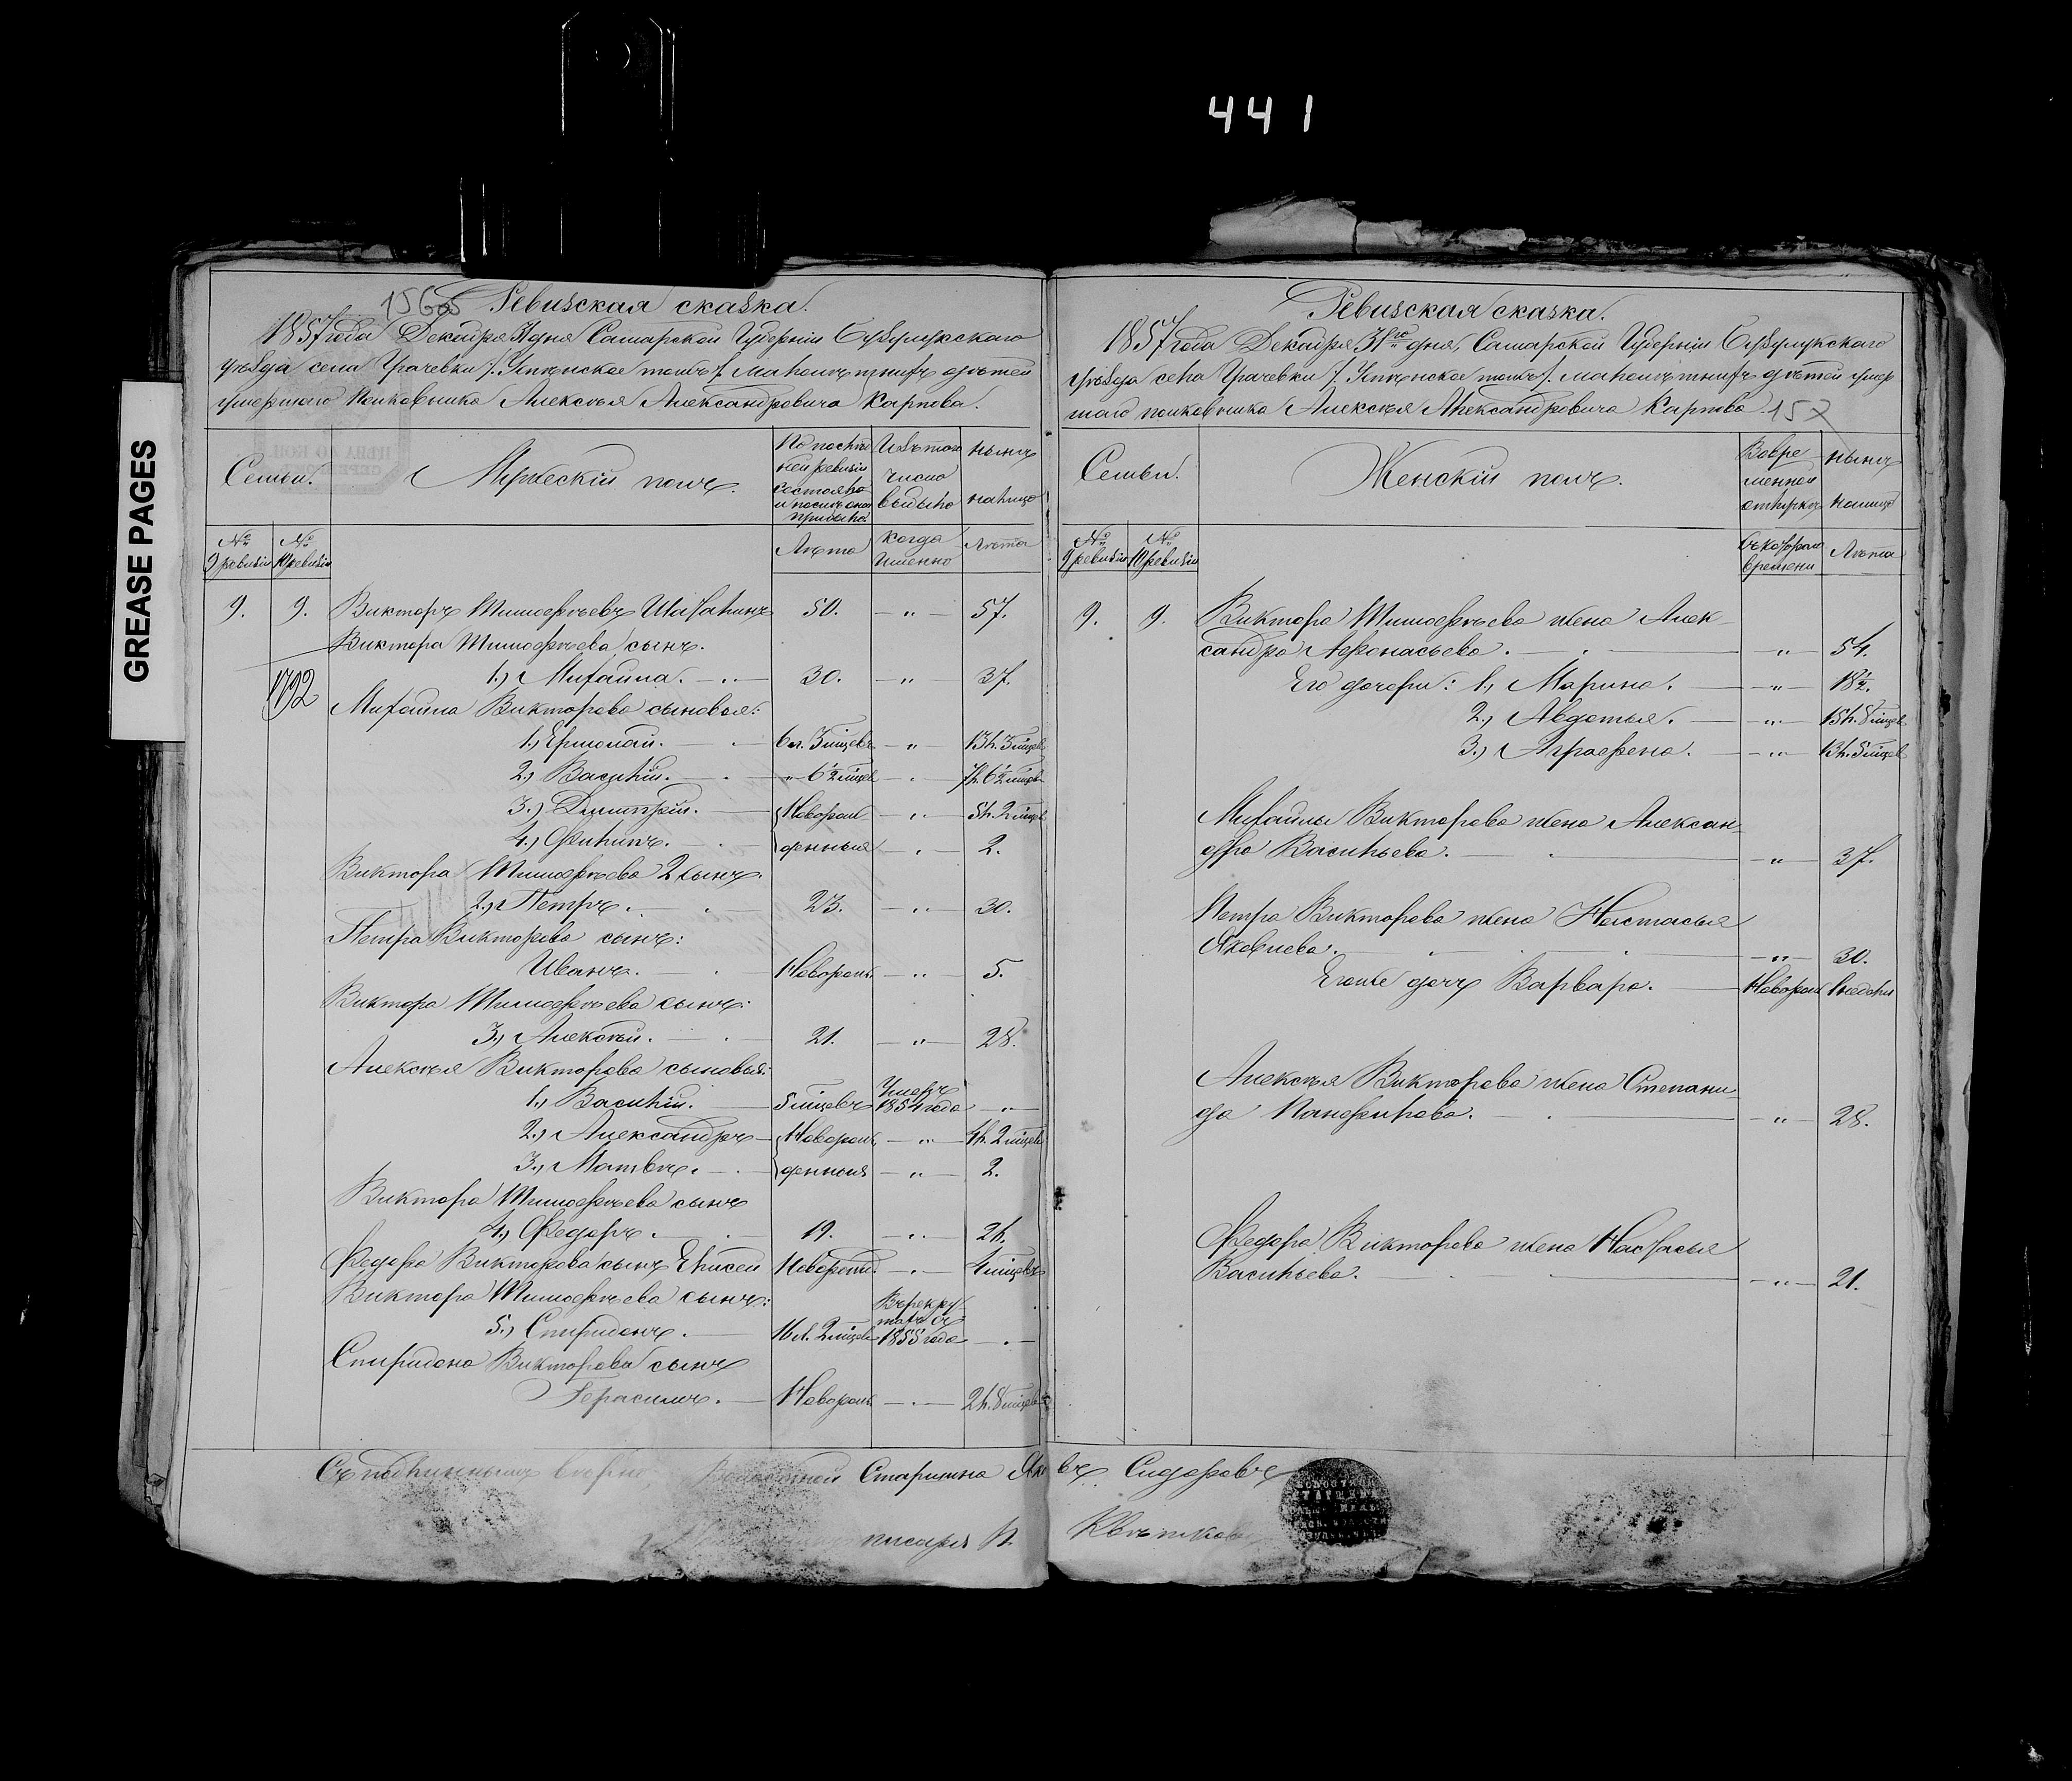 441
GREASE PAGES
156об
Ревизская сказка.
1857 года Декабря 31 дня Самарской Губерніи Бузулукскаго
уѣзда села Грачевки /: Успенское тожъ :/ малолѣтнихъ дѣтей
умершаго полковника Алексѣя Александровича Карпова.
Семьи.
Мужескій полъ.
По послѣдней ревизіи состояло и послѣ оной прибыло
Изъ того числа выбыло
нынѣ на лицо
№ 9 ревизіи
№ 10 ревизіи
Лѣта
когда именно
Лѣта
9. 9. Викторъ Тимофѣевъ 50. — " — 57.
Виктора Тимофѣева сынъ.
1.) Михайла. 30. — " — 37.
1792
Михайла Викторова сыновья:
1., Ермолай. 6 л. 3 мѣцевъ — " — 13 л. 3 мѣцев
2.) Василій. " 6½ мѣцев — " — 7 л. 6½ мѣцев
3.) Димитрій. Новорож — " — 5 л. 2 мѣцев
4.) Филипъ. денныя — " — 2.
Виктора Тимофѣева 2 сынъ.
2.) Петръ. 23. — " — 30.
Петра Викторова сынъ:
Иванъ. Новорож. — " — 5.
Виктора Тимофѣева сынъ:
3.) Алексѣй. 21. — " — 28.
Алексѣя Викторова сыновья:
1., Василій. 5 мѣцевъ Умеръ 1854 года — " —
2.) Александръ Новорож — " — 4 л. 2 мѣцев
3.) Матвѣй. денныя — " — 2.
Виктора Тимофѣева сынъ
4.) Федоръ. 19. — " — 26.
Федора Викторова сынъ Елисей Новорожд. — " — 4 мѣцевъ
Виктора Тимофѣева сынъ:
5.) Спиридонъ. 16 л. 2 мѣцев Въ рекрутахъ съ 1855 года — " —
Спиридона Викторова сынъ
Герасимъ. Новорож. — " — 2 л. 8 мѣцев
Съ подлиннымъ вѣрно, Волостной Старшина
писарь П.
Ревизская сказка.
1857 года Декабря 31го дня, Самарской Губерніи Бузулукскаго
уѣзда села Грачевки /: Успенское тожъ :/ малолѣтнихъ дѣтей умер
шаго полковника Алексѣя Александровича Карпова.
157
Семьи.
Женскій полъ.
Во временной отлучкѣ
нынѣ на лицо
№ 9 ревизіи
№ 10 ревизіи
Съ котораго времени
Лѣта
9. 9. Виктора Тимофѣева жена Алек
сандра Афонасьева. — " — 54.
Его дочери: 1., Марина. — " — 18½.
2., Авдотья. — " — 15 л. 8 мѣцев
3.) Аграфена. — " — 13 л. 5 мѣцев
Михайлы Викторова жена Алексан
дра Васильева. — " — 37.
Петра Викторова жена Настасья
Яковлева. — " — 30.
Егоже дочь Варвара. Новорож 1 недели
Алексѣя Викторова жена Степани
да Панфирова. — " — 28.
Федора Викторова жена Настасья
Васильева. — " — 21.
Сидоровъ